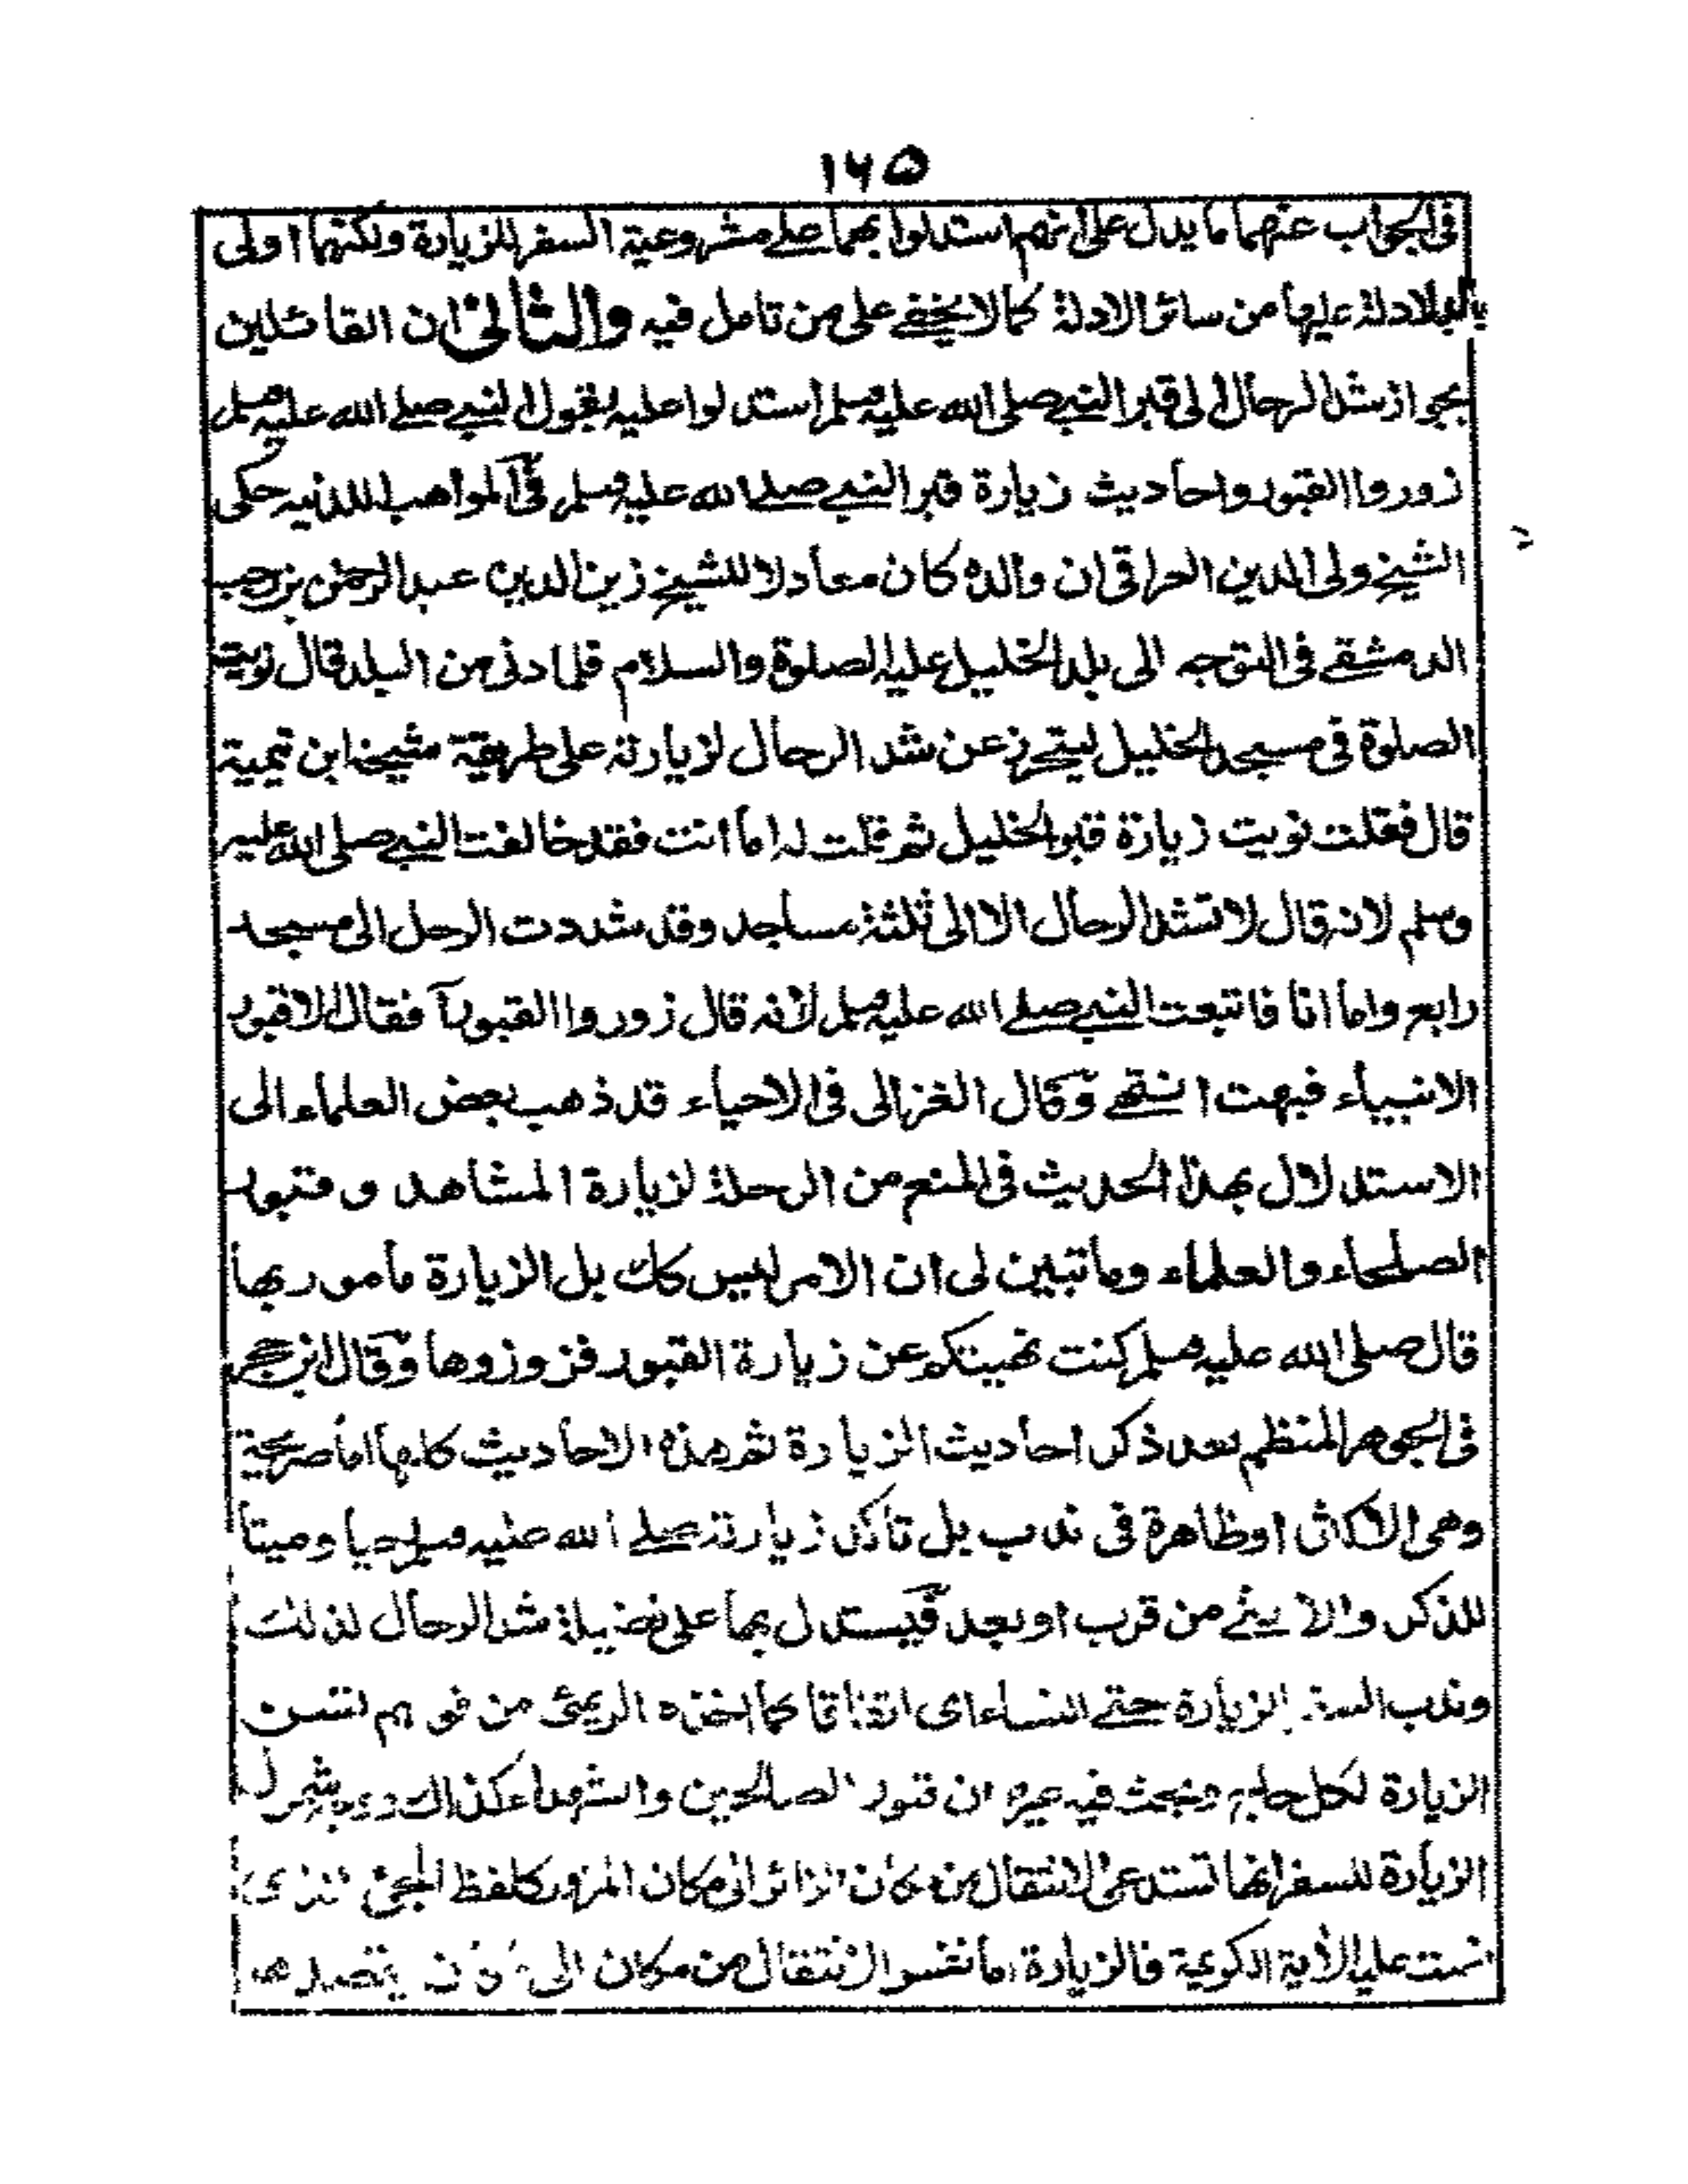 ١٦٥
فى الجواب عنهما ما يدل على انهم استدلوا بهما على مشروعية السفر للزيارة ولكنهما اولى
بالدلالة عليها من سائر الادلة كما لا يخفے على من تامل فيه والثانى ان القائلين
بجواز شد الرحال الى قبر النبي صلى الله عليه وسلم استدلوا عليه بقول النبي صلى الله عليه وسلم
زوروا القبور واحاديث زيارة قبر النبي صلى الله عليه وسلم فى المواهب اللدنيه حكى
الشيخ ولى الدين العراقى ان والده كان معادلا للشيخ زين الدين عبد الرحمن بن رجب
الدمشقے فى التوجه الى بلد الخليل عليه الصلوة والسلام فلما دنى من البلد قال نويت
الصلوة فى مسجد الخليل ليتحرز عن شد الرحال لزيارته على طريقة شيخه ابن تيمية
قال فقلت نويت زيارة قبر الخليل ثم قلت له اما انت فقد خالفت النبي صلى الله عليه
وسلم لانه قال لا تشد الرحال الا الى ثلثة مساجد وقد شددت الرحل الى مسجد
رابع واما انا فاتبعت النبي صلى الله عليه وسلم لانه قال زوروا القبور آ فقال الا قبور
الانبياء فبهت انتهى وقال الغزالى فى الاحياء قد ذهب بعض العلماء الى
الاستدلال بهذا الحديث فى المنع من الرحلة لزيارة المشاهد وقبور
الصلحاء والعلماء وما تبين لى ان الامر ليس كك بل الزيارة مأمور بها
قال صلى الله عليه وسلم كنت نهيتكم عن زيارة القبور فزوروها وقال ابن حجر
فى الجوهر المنظم بعد ذكر احاديث الزيارة ثم هذه الاحاديث كلها اما صريحة
وهى الاكثر او ظاهرة فى ندب بل تأكد زيارته صلى الله عليه وسلم حيا وميتا
للذكر والانثى من قرب او بعد فيستدل بها على فضيلة شد الرحال لذلك
وندب السفر للزيارة حتى للنساء اى اتفاقا كما اخذه الريمى من قولهم تسن
الزيارة لكل حاج وبحث فيه غيره ان قبور الصالحين والشهداء كذلك شمول
الزيارة للسفر انها تستدعى الانتقال من مكان الزائر الى مكان المزور كلفظ المجئ الذى
نصت عليه الأية الكريمة فالزيارة اما نفس الانتقال من مكان الى مكان يقصدها